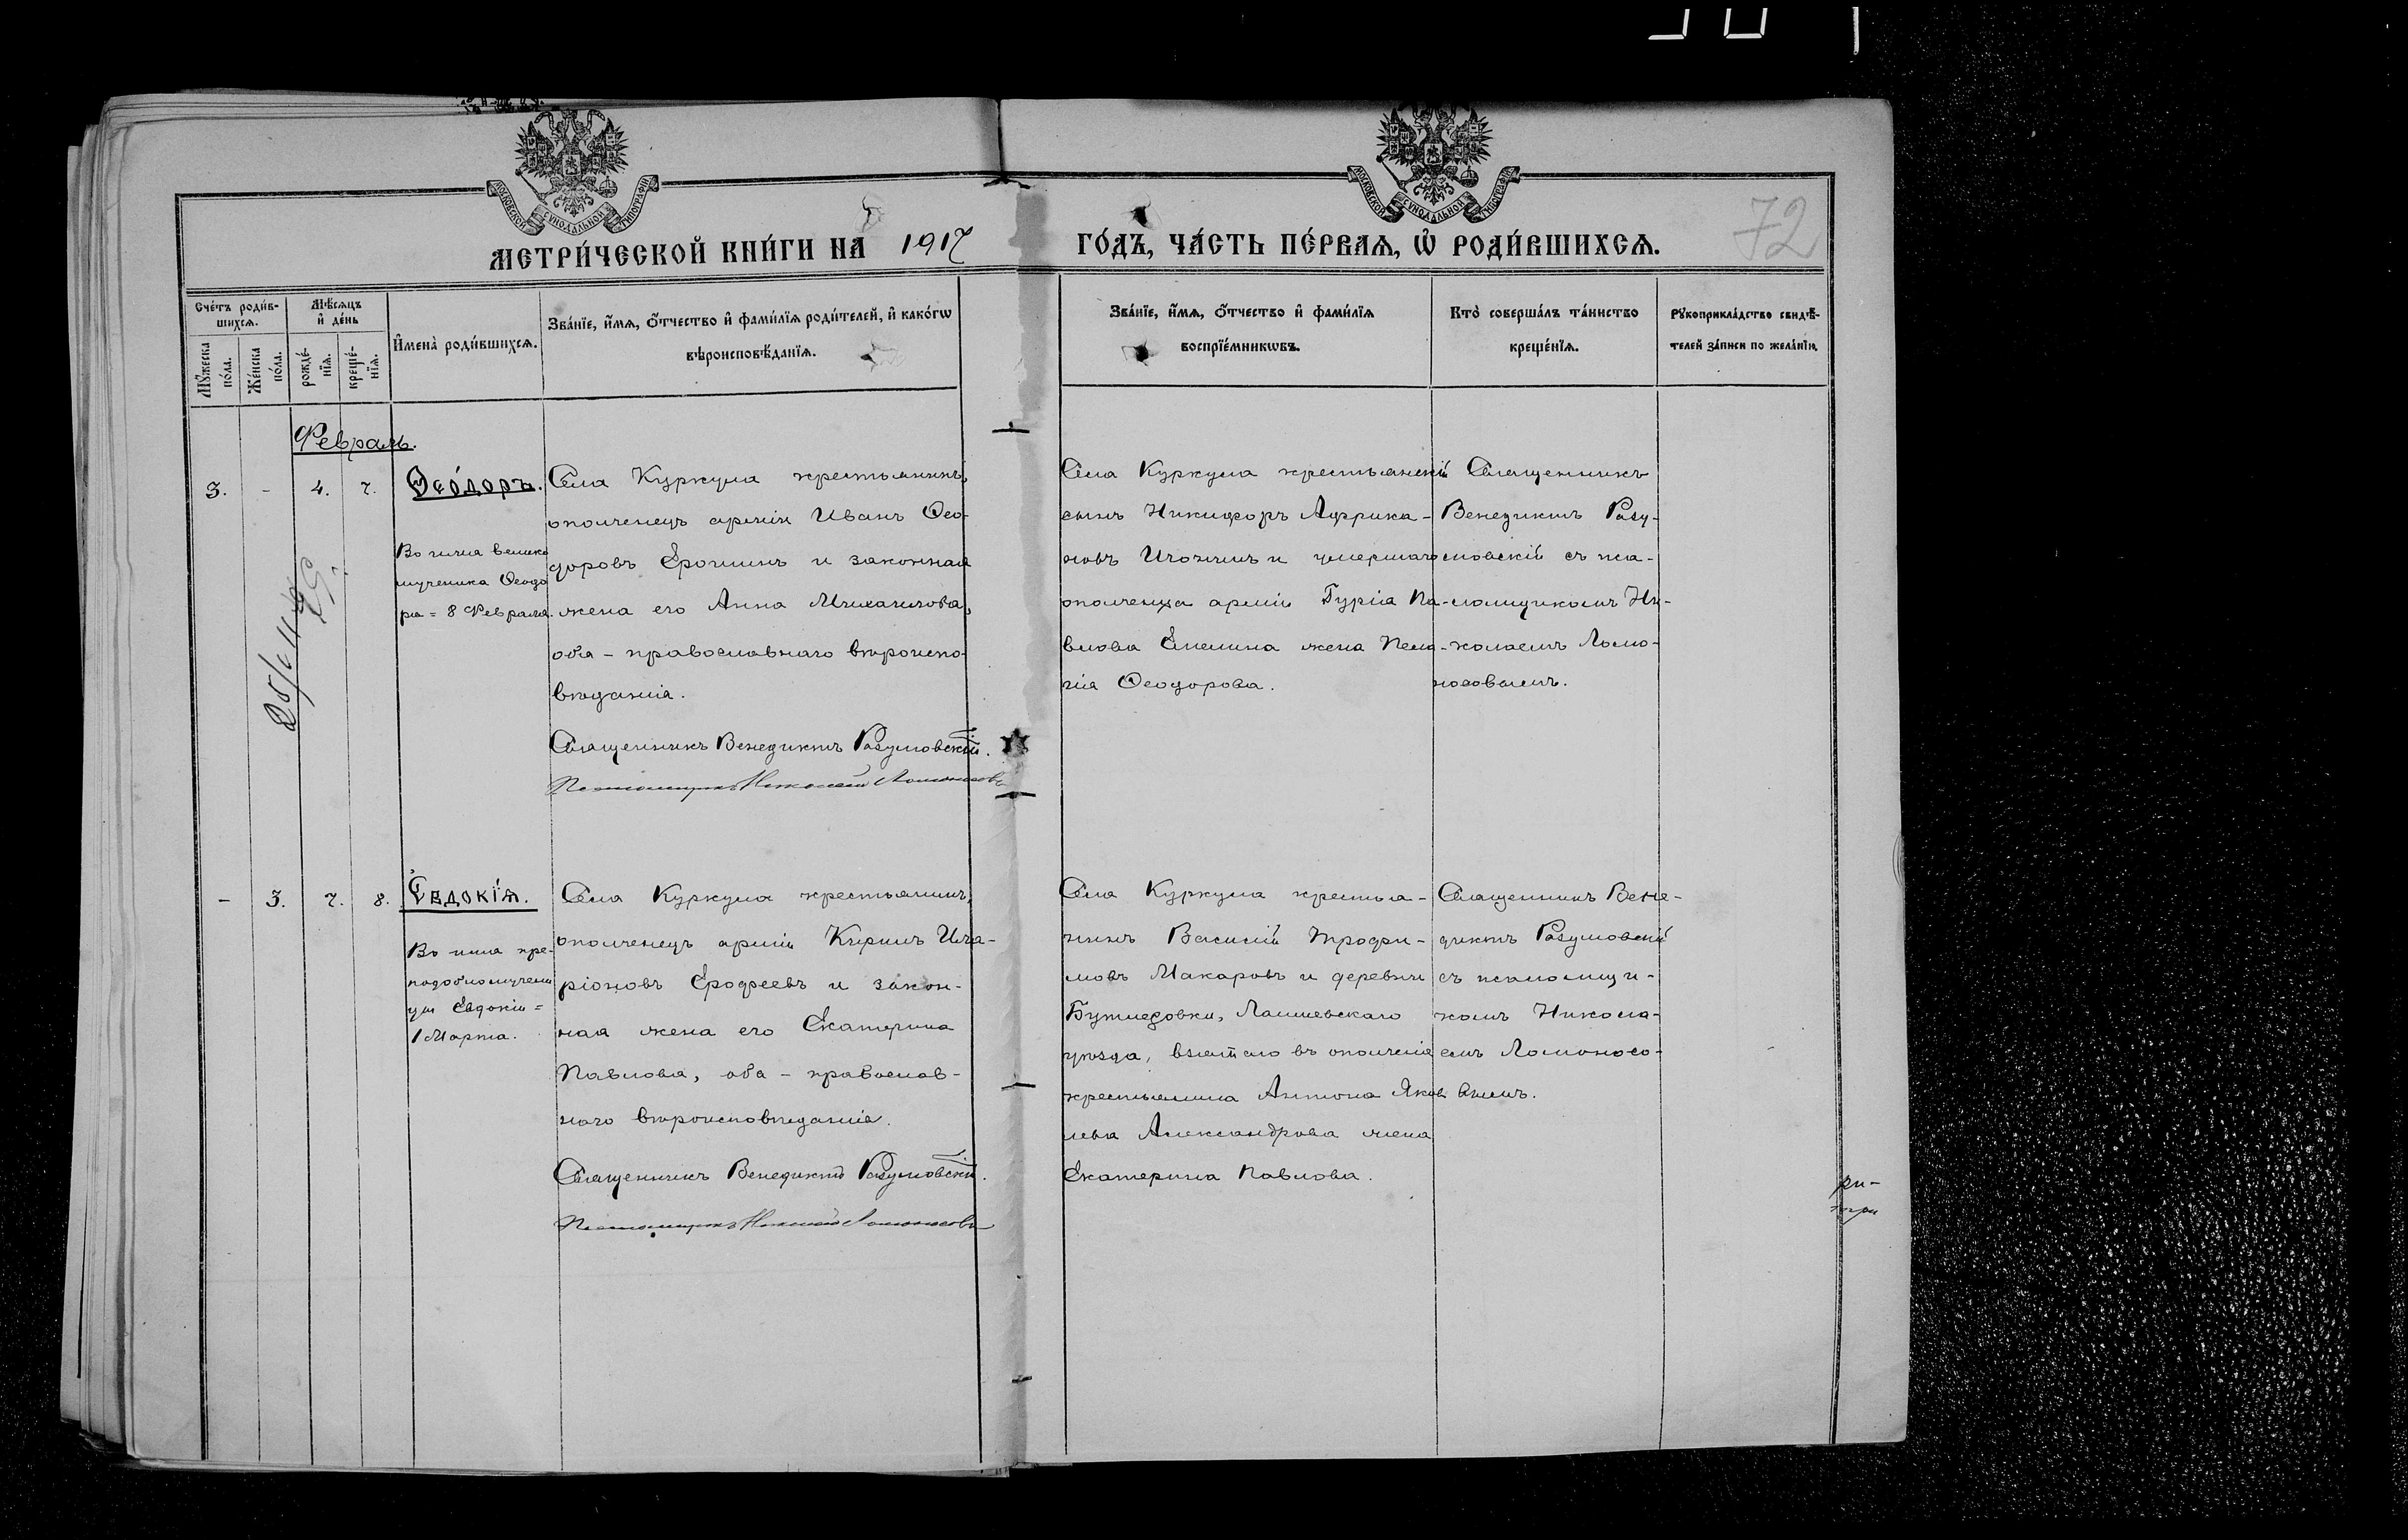 МОСКОВСКОЙ СУНОДАЛЬНОЙ ТИПОГРАФІИ
МОСКОВСКОЙ СУНОДАЛЬНОЙ ТИПОГРАФІИ
72
МЕТРИ́ЧЕСКОЙ КНИ́ГИ НА 1917
ГО́ДЪ, ЧА́СТЬ ПЕ́РВАѦ, Ѡ҆ РОДИ́ВШИХСѦ.
Сче́тъ роди́в-
шихсѧ.
Мꙋ́жеска
по́ла.
Же́нска
по́ла.
Мѣ́сѧцъ
и҆ де́нь
рожде́-
нїѧ.
креще́-
нїѧ.
И҆мена̀ роди́вшихсѧ.
Зва́нїе, и҆́мѧ, ѻ҆́тчество и҆ фами́лїѧ роди́телей, и҆ како́гѡ
вѣроисповѣ́данїѧ.
Зва́нїе, и҆́мѧ, ѻ҆́тчество и҆ фами́лїѧ
воспрїе́мникѡвъ.
Кто̀ соверша́лъ та́инство
креще́нїѧ.
Рꙋкоприкла́дство свидѣ́-
телей за́писи по жела́нїю.
Февраль.
3. - 4. 7. Ѳео́доръ.
Во имя велико
мученика Ѳеодо
ра = 8 Февраля.
Села Куркула крестьянинъ,
ополченецъ арміи Иванъ Ѳео-
доровъ Ерошинъ и законная
жена его Анна Михаилова,
оба - православнаго вѣроиспо-
вѣданія.
Священникъ Венедиктъ Разумовскій.
Псаломщикъ Николай Ломоносовъ
Села Куркула крестьянскій
сынъ Никифоръ Африка-
новъ и умершаго
ополченца арміи Гурія Па-
влова Емелина жена Пела-
гія Ѳеодорова.
Священникъ
Венедиктъ Разу-
мовскій съ пса-
ломщикомъ Ни-
колаемъ Ломо-
носовымъ.
- 3. 7. 8. Е҆вдокі́ѧ.
Во имя пре-
подобномучени
цы Евдокіи =
1 Марта.
Села Куркула крестьянинъ,
ополченецъ арміи Кирилъ Ила-
ріоновъ Ерофеевъ и закон-
ная жена его Екатерина
Павлова, оба - православ-
наго вѣроисповѣданія.
Священникъ Венедиктъ Разумовскій.
Псаломщикъ Николай Ломоносовъ
Села Куркула крестья-
нинъ Василій Трофи-
мовъ Макаровъ и деревни
Бутледовки, Лаишевскаго
уѣзда, взятаго въ ополченіе
крестьянина Антона Яков
лева Александрова жена
Екатерина Павлова.
Священникъ Вене-
диктъ Разумовскій
съ псаломщи-
комъ Никола-
емъ Ломоносо-
вымъ.
ри-